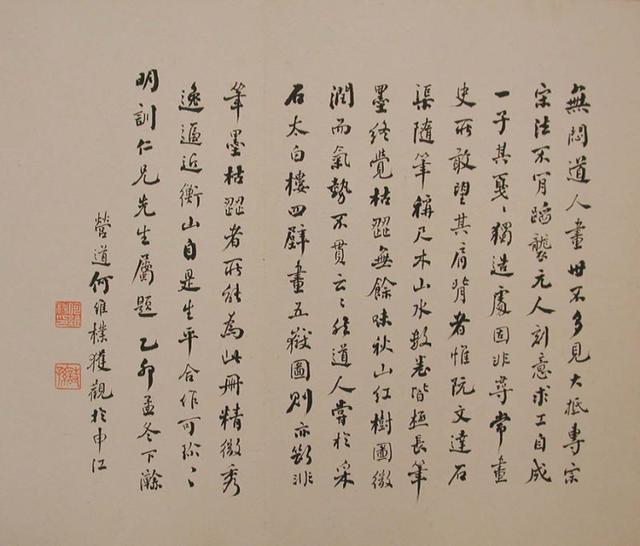 無悶道人畫世不多見大抵專宗
宋法不肎蹈襲元人刻意求工自成
一子其戛〻獨造處固非尋常畫
史所敢望其肩背者惟阮文達石
渠隨筆稱尺木山水數卷皆極長筆
墨終覺枯澀無餘味秋山紅樹圖微
潤而氣勢不貫云〻然道人嘗於采
石太白樓四壁畫五嶽圖則亦斷非
筆墨枯澀者所能為此冊精微秀
逸逼近衡山自是生平合作可珍〻
明訓仁兄先生屬題 乙卯孟冬下澣
營道何維樸獲觀於申江